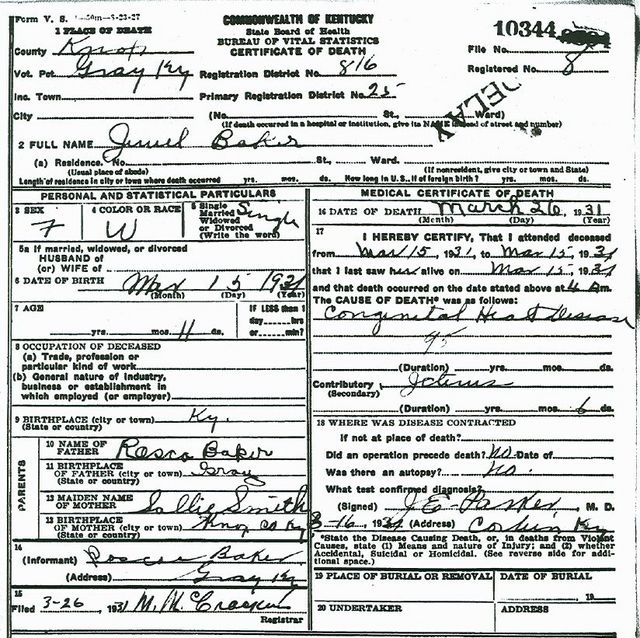 Form V. S. 1-50m-8-23-27
COMMONWEALTH OF KENTUCKY
State Board of Health
BUREAU OF VITAL STATISTICS
CERTIFICATE OF DEATH
10344
1 PLACE OF DEATH
County Knox
File No.
Vot. Pct. Gray Ky Registration District No. 816
Registered No. 8
Inc. Town Primary Registration District No. 25
DELAY
City (No. St., Ward)
(If death occurred in a hospital or institution, give its NAME instead of street and number)
2 FULL NAME Jewel Baker
(a) Residence. No. St., Ward.
(Usual place of abode) (If nonresident, give city or town and State)
Length of residence in city or town where death occurred yrs. mos. ds. How long in U.S., if of foreign birth? yrs. mos. ds.
PERSONAL AND STATISTICAL PARTICULARS
3 SEX F
4 COLOR OR RACE W
5 Single Married Widowed or Divorced (Write the word) Single
5a If married, widowed, or divorced
HUSBAND of
(or) WIFE of
6 DATE OF BIRTH Mar 15 1931
(Month) (Day) (Year)
7 AGE
yrs. mos. 11 ds.
IF LESS than 1
day hrs
or min?
8 OCCUPATION OF DECEASED
(a) Trade, profession or
particular kind of work
(b) General nature of industry,
business or establishment in
which employed (or employer)
9 BIRTHPLACE (city or town) Ky.
(State or country)
PARENTS
10 NAME OF
FATHER Rosco Baker
11 BIRTHPLACE
OF FATHER (city or town) Gray
(State or country)
12 MAIDEN NAME
OF MOTHER Sollie Smith
13 BIRTHPLACE
OF MOTHER (city or town) Knox Co Ky
(State or country)
14
(Informant) Roscoe Baker
(Address) Gray Ky
15
Filed 3-26, 1931
Registrar
MEDICAL CERTIFICATE OF DEATH
16 DATE OF DEATH March 26, 1931
(Month) (Day) (Year)
17
I HEREBY CERTIFY, That I attended deceased
from Mar 15, 1931, to Mar 15, 1931
that I last saw her alive on Mar 15, 1931
and that death occurred on the date stated above at 4 Am.
The CAUSE OF DEATH* was as follows:
Congenital Heart Disease
95
(Duration) yrs. mos. ds.
Contributory
(Secondary)
(Duration) yrs. mos. 6 ds.
18 WHERE WAS DISEASE CONTRACTED
If not at place of death?
Did an operation precede death? No Date of
Was there an autopsy? No.
What test confirmed diagnosis?
(Signed) J. E. Parker, M. D.
3-16, 1931 (Address) Corbin, Ky
*State the Disease Causing Death, or, in deaths from Violent
Causes, state (1) Means and nature of Injury; and (2) whether
Accidental, Suicidal or Homicidal. (See reverse side for addi-
tional space.)
19 PLACE OF BURIAL OR REMOVAL DATE OF BURIAL
19
20 UNDERTAKER ADDRESS